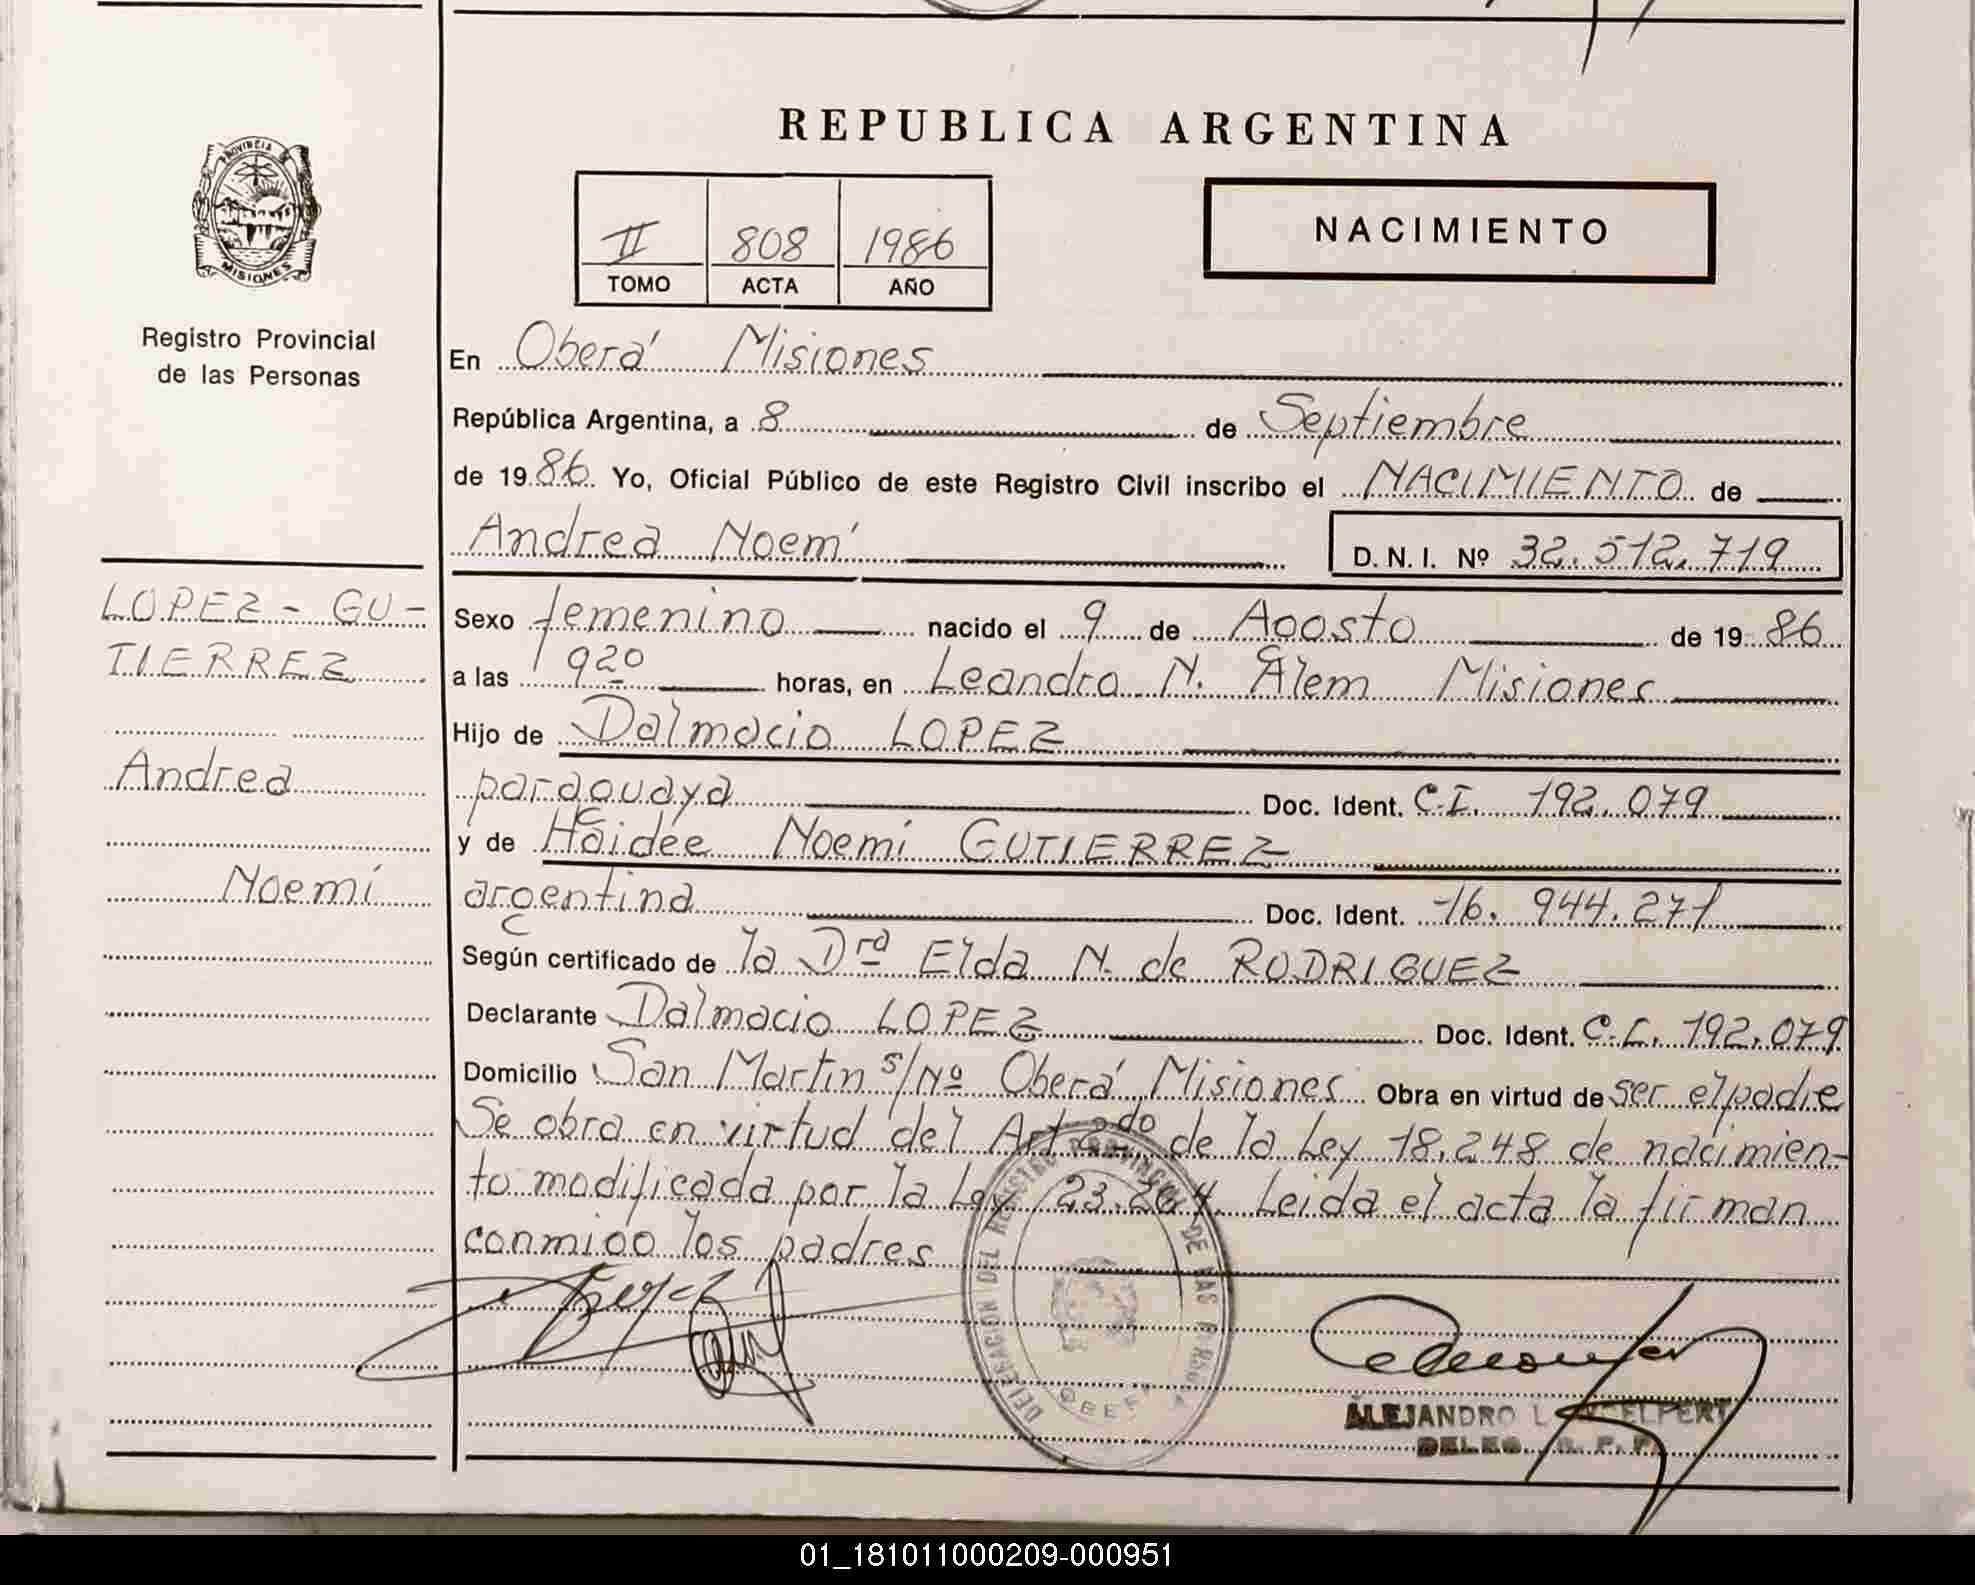 REPUBLICA ARGENTINA
PROVINCIA
MISIONES
Registro Provincial
de las Personas
II 808 1986
TOMO ACTA AÑO
NACIMIENTO
En Oberá Misiones
República Argentina, a 8 de Septiembre
de 1986. Yo, Oficial Público de este Registro Civil inscribo el NACIMIENTO de
Andrea Noemí
D. N. I. Nº 32.512.719
LOPEZ - GU-
TIERREZ
Andrea
Noemí
Sexo femenino nacido el 9 de Agosto de 1986
a las 9 20 horas, en Leandro N. Alem Misiones
Hijo de Dalmacio LOPEZ
paraguaya Doc. Ident. C.I. 192.079
y de Haidee Noemí GUTIERREZ
argentina Doc. Ident. 16.944.271
Según certificado de la Dra Elda N. de RODRIGUEZ
Declarante Dalmacio LOPEZ Doc. Ident. C.I. 192.079
Domicilio San Martin s/Nº Oberá Misiones Obra en virtud de ser el padre
Se obra en virtud del Art 2do de la Ley 18.248 de nacimien-
to modificada por la Ley 23.264. Leida el acta la firman
conmigo los padres
DELEGACION DEL REGISTRO PROVINCIAL DE LAS PERSONAS
ALEJANDRO L
DELEG. R. P. P.
01_181011000209-000951